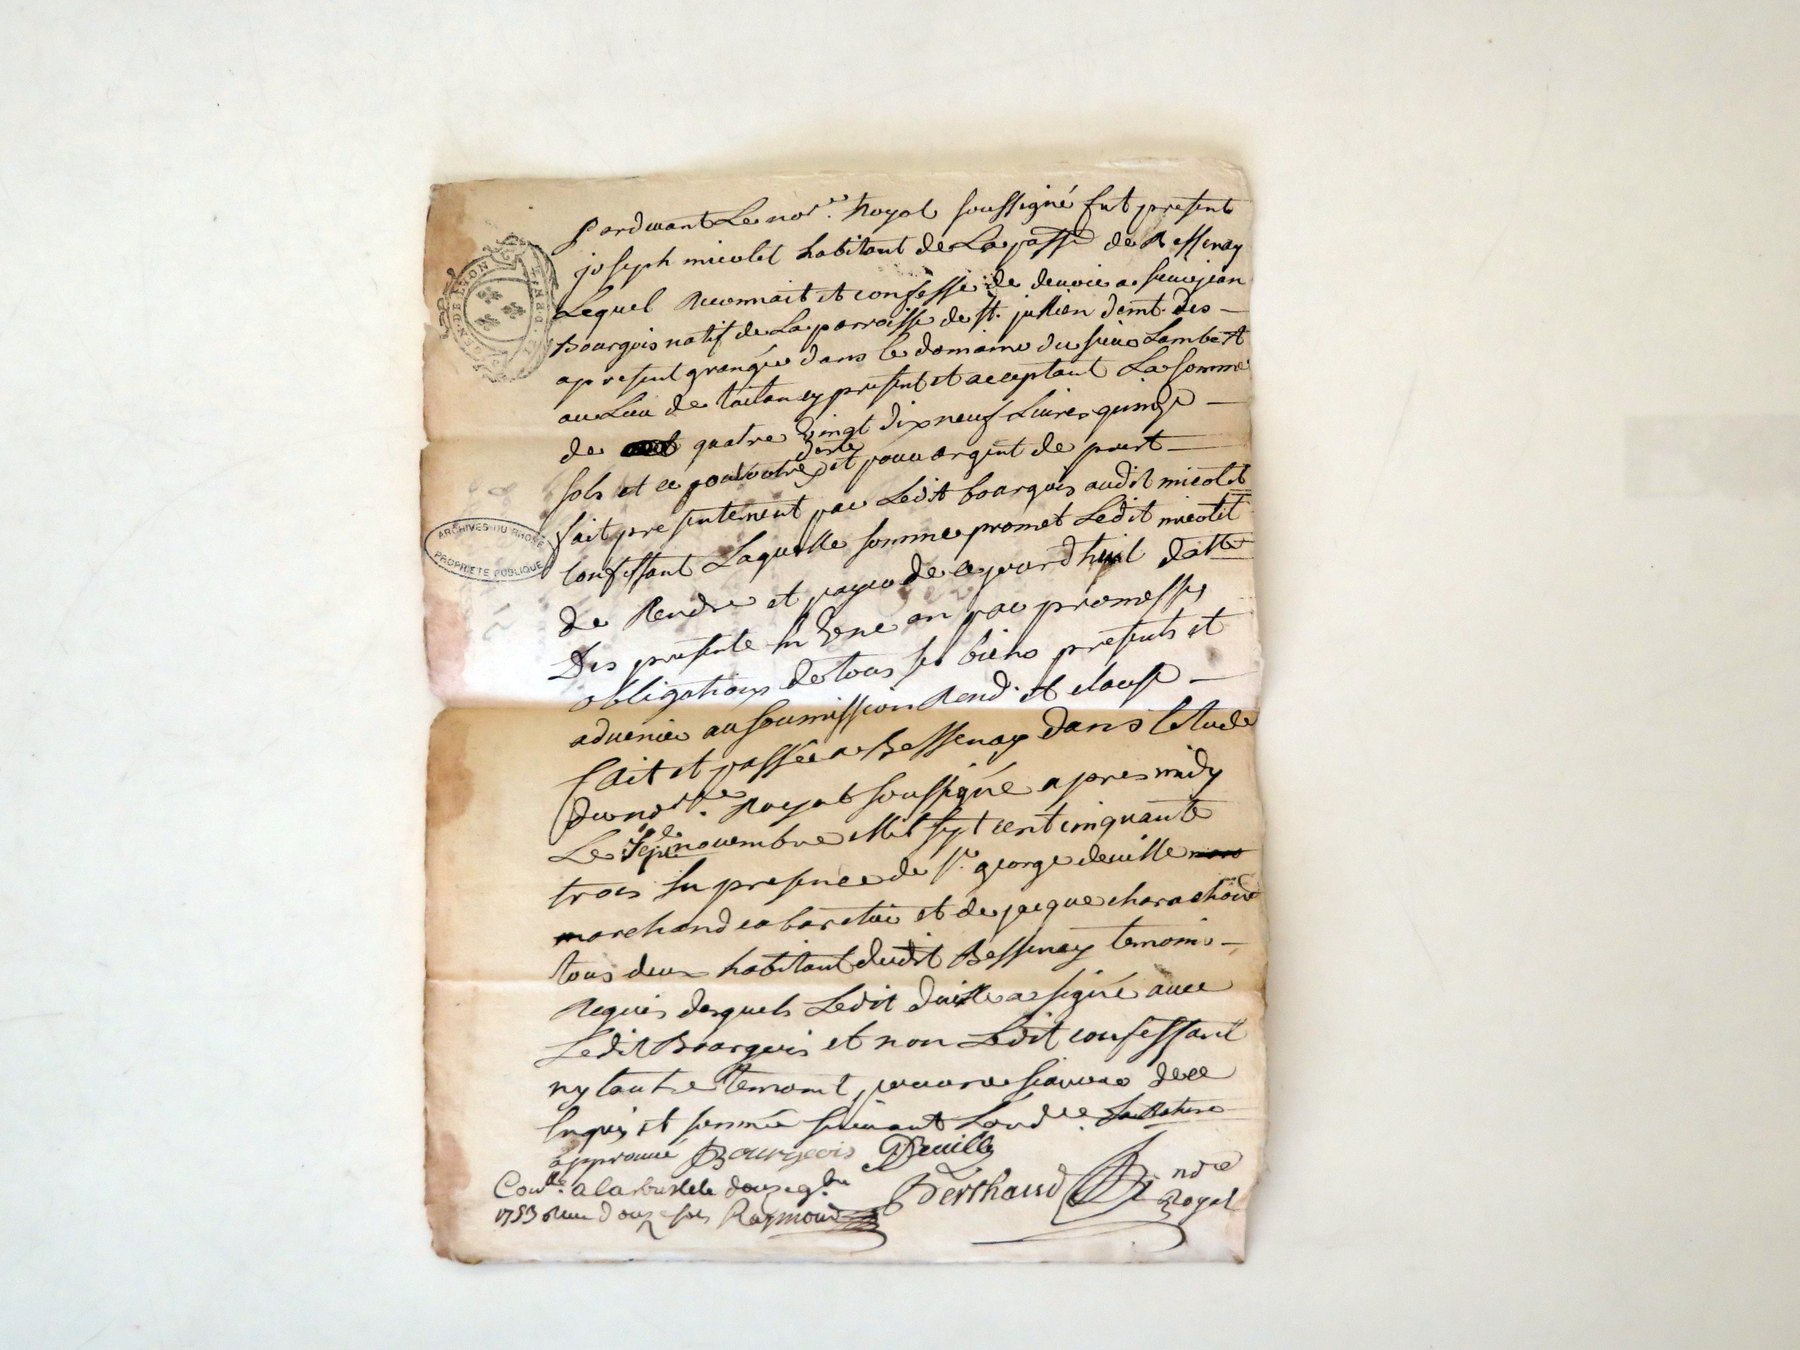 Pardevant Le nore. Royal soussigné fut present
joseph micolet habitant de La passe de Bessenay
Lequel Reconnait et confesse de devoir a sieur jean
Bourgois natif de La parroisse de st. jullien
apresent granger dans le domaine du sieur Lambert
au Lieu de present et acceptant La somme
de quatre vingt dix neuf Livres quinze
sols et ce pour et pour argent de prest
fait presentement par Ledit bourgois audit micolet
Confessant Laquelle somme promet Ledit micolet
de Rendre et payer de ce jourdhuit datte
Des presente En un an par promesses
obligations de tous ses biens presents et
advenir au soumission Rend. et clause
fait et passé a Bessenay dans letude
du nore. Royal soussigné apres midy
Le novembre Mil sept cent cinquante
trois En presence de sr. george deville
marchand cabaretier et de jacque
tous deux habitant dudit Bessenay temoins
Requis desquels Ledit deville a signé avec
Ledit Bourgois et non Ledit confessant
ny lautre temoint, pour ne sçavoir de ce
Enquis et sommé suivant Lordce.
approuvé Bourgeois Deville
Conlle. a la 9bre Berthaud nore
1753 Reçu douze sols Raymond Royal
GEN. DE LYON
ARCHIVES DU RHONE
PROPRIETE PUBLIQUE